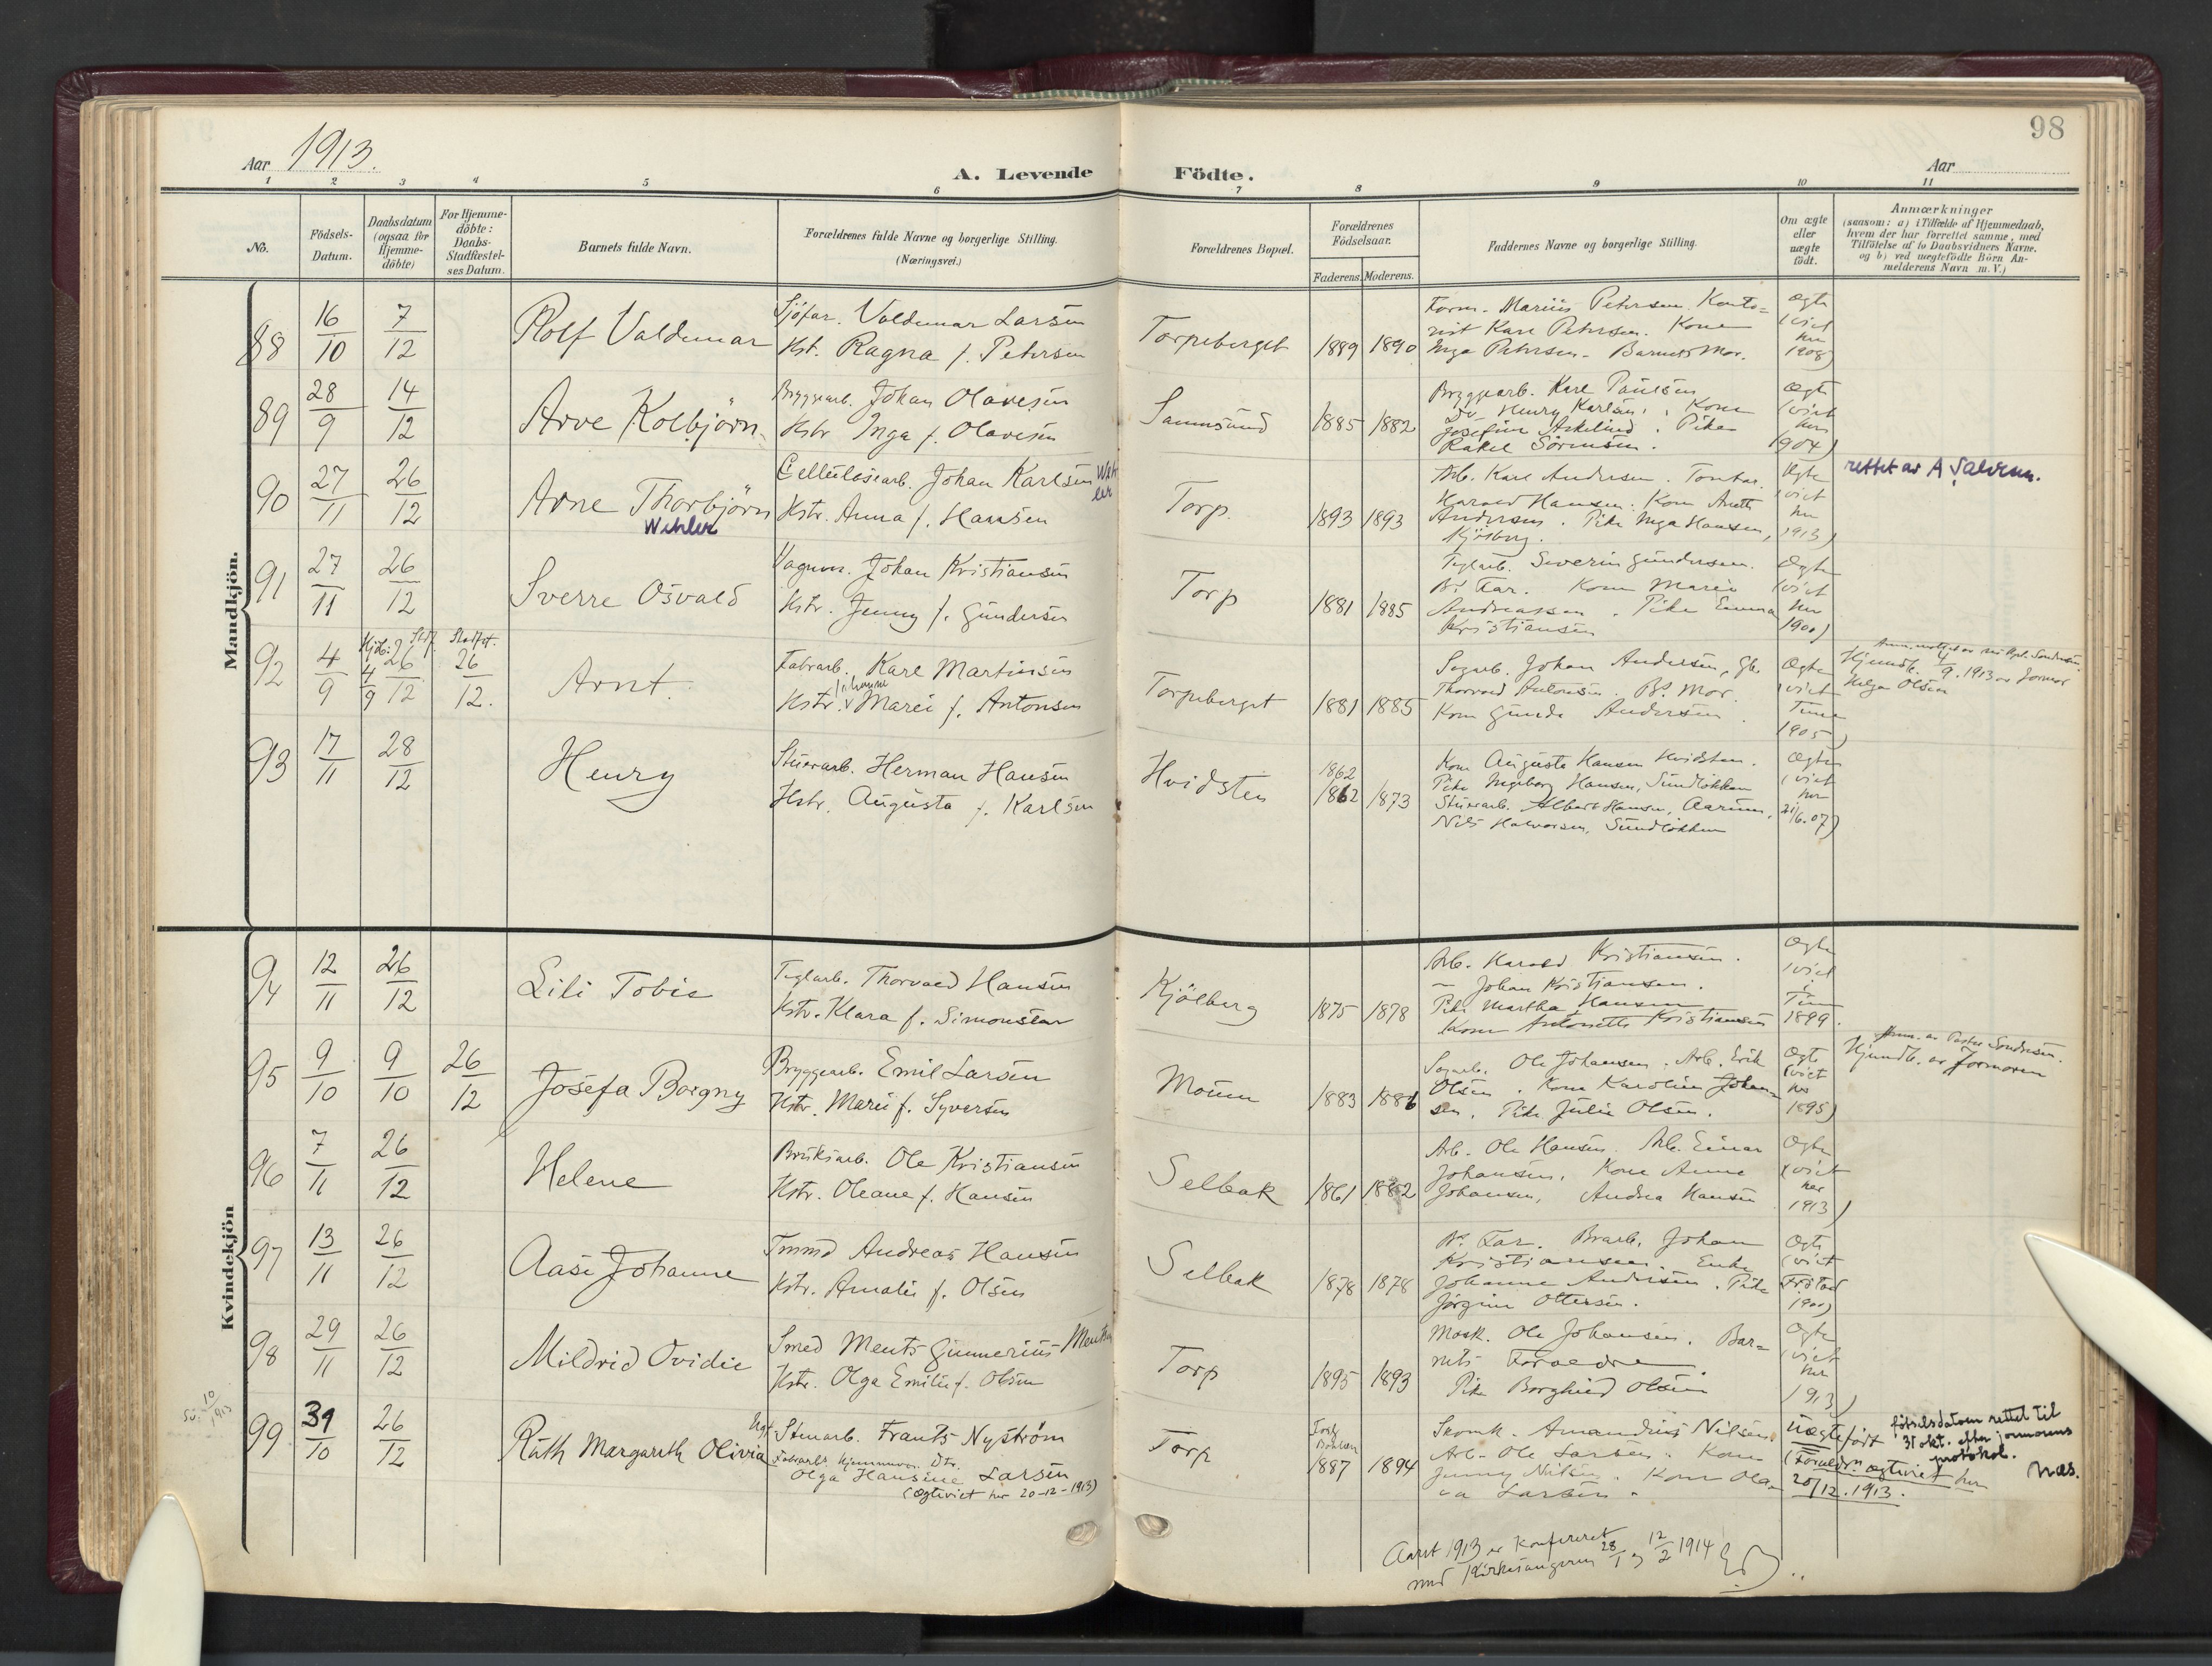 98
Aar 1913.
A. Levende Födte.
Aar
1 2 3 4 5 6 7 8 9 10 11
No.
Födsels-Datum.
Daabsdatum (ogsaa for Hjemme-döbte)
For Hjemme-döbte: Daabs-Stadfæstel-ses Datum.
Barnets fulde Navn.
Forældrenes fulde Navne og borgerlige Stilling. (Næringsvei.)
Forældrenes Bopæl.
Forældrenes Födselsaar.
Faderens. Moderens.
Faddernes Navne og borgerlige Stilling.
Om ægte eller uægte födt.
Anmærkninger
(saasom: a) i Tilfælde af Hjemmedaab, hvem der har forrettet samme, med Tilföielse af to Daabsvidners Navne. og b) ved uægtefödte Börn An-melderens Navn m. V.)
Mandkjön.
88 16/10 7/12 Rolf Valdemar
Sjöfar. Valdemar Larsen
Hst. Ragna f. Petersen
Torpeberget 1889 1890
Form. Marius Petersen. Konto=
rist Karl Petersen. Kone
Inga Petersen. Barnets Mor.
Ægte
(viet
her
1908)
89 28/9 14/12 Arve Kolbjörn
Bryggearb. Johan Olavesen
Hstr Inga f. Olavesen
Sannesund 1885 1882
Bryggearb. Karl Paulsen
Do Henry Karlsen. Kone
Josefine Askelund. Pike
Rakel Sörensen.
Ægte
(viet
her
1904)
90 27/11 26/12 Arne Thorbjörn
Wehler
Cellulosearb. Johan Karlsen Wehler
Hstr. Anna f. Hansen
Torp. 1893 1893
Arb. Karl Andersen. Tomtar.
Harald Hansen. Kone Aneth
Andersen. Pike Inga Hansen,
Kjölberg.
Ægte
viet
her
1913)
rettet av A Salvesen.
91 27/11 26/12 Sverre Osvald
Vognm. Johan Kristiansen
Hstr. Jenny f. Gundersen
Torp 1881 1885
Teglarb. Severin Gundersen.
Bs Far. Kone Marie
Andreassen. Pike Emma
Kristiansen
Ægte
(viet
her
1900)
92 4/9 4/9 26/12 Stadf. 26/12. Arnt.
Fabrarb. Karl Martinsen
Hstr. Johanne Marie f. Antonsen
Torpeberget 1881 1885
Sagarb. Johan Andersen, Gb.
Thorvald Antonsen. Bs Mor.
Kone Gunda Andersen.
Ægte
(viet
Tune
1905)
Hjemdb. 4/9.1913 av Jormor
Helga Olsen
93 17/11 28/12 Henry
Stuerarb. Herman Hansen
Hstr. Augusta f. Karlsen
Hvidsten 1862 1862 1873
Kone Augusta Hansen Hvidsten.
Pike Ingeborg Hansen, Sundlökken
Stuerarb. Albert Hansen, Aarum,
Nils Halvorsen, Sundlökken
Ægte
(viet
her
21/6.07)
Kvindekjön
94 12/11 26/12 Lili Tobie
Teglarb. Thorvald Hansen
Hstr. Klara f. Simonsen
Kjölberg 1875 1878
Arb. Harald Kristiansen.
– Johan Kristiansen.
Pike Martha Hansen
Kone Antonette Kristiansen
Ægte
(viet
i
Tune
1899.
95 9/10 9/10 26/12 Josefa Borgny
Bryggearb. Emil Larsen
Hstr. Marie f. Syversen
Moum 1883 1886
Sagarb. Ole Johansen. Arb. Erik
Olsen. Kone Karoline Johan
sen. Pike Julie Olsen.
Ægte
(viet
her
1895)
Anm. av Pastor Sondresen.
Hjemdb. av Jormoren
96 7/11 26/12 Helene
Bruksarb. Ole Kristiansen
Hstr. Oleane f. Hansen
Selbak 1861 1882
Arb. Ole Hansen. Arb. Einar
Johansen. Kone Anne
Johansen, Andrea Hansen
Ægte
(viet
her
1913)
97 13/11 26/12 Aase Johanne
Tmmd Andreas Hansen
Hstr. Amalie f. Olsen
Selbak 1878 1878
Bs Far. Brarb. Johan
Kristiansen. Enke
Johanne Andersen. Pike
Jörgine Ottersen.
Ægte
(viet
Frstad
1900)
98 29/11 26/12 Mildrid Ovidie
Smed Ments Gunnerius Mentsen
Hstr. Olga Emilie f. Olsen
Torp 1895 1893
Mask. Ole Johansen. Bar=
nets Foraedre.
Pike Borghild Olsen
Ægte
(viet
her
1913)
99 31/10 26/12 Ruth Margareth Olivia
Ungk. Stenarb. Frants Nyström
Fabrarb. Hjemmev. Dtr.
Olga Hansine Larsen
(Ægteviet her 20-12-1913)
Torp 1887 1894
Skomk. Amandius Nilsen.
Arb. Ole Larsen. Kone
Jenny Nilsen. Kone Ola=
va Larsen.
Uægtefödt
(Foraeldrn ægteviet her
20/12.1913.
fötselsdatum rettet til
31 okt. efter jormorens
protokol.
Næs.
Aaret 1913 er konfereret
med Kirkesangeren 28/1 og 12/2 1914